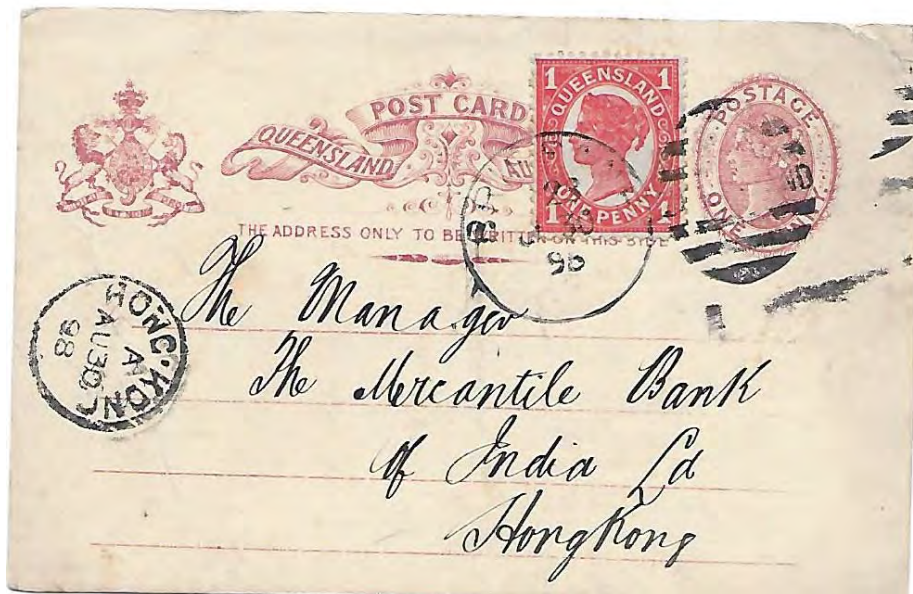 POST CARD
QUEENSLAND
1 QUEENSLAND 1
1 ONE PENNY 1
POSTAGE
ONE
THE ADDRESS ONLY TO BE WRITTEN ON THIS SIDE
HONG-KONG
A
AU 30
98
The Manager
The Mercantile Bank
of India Ld
HongKong